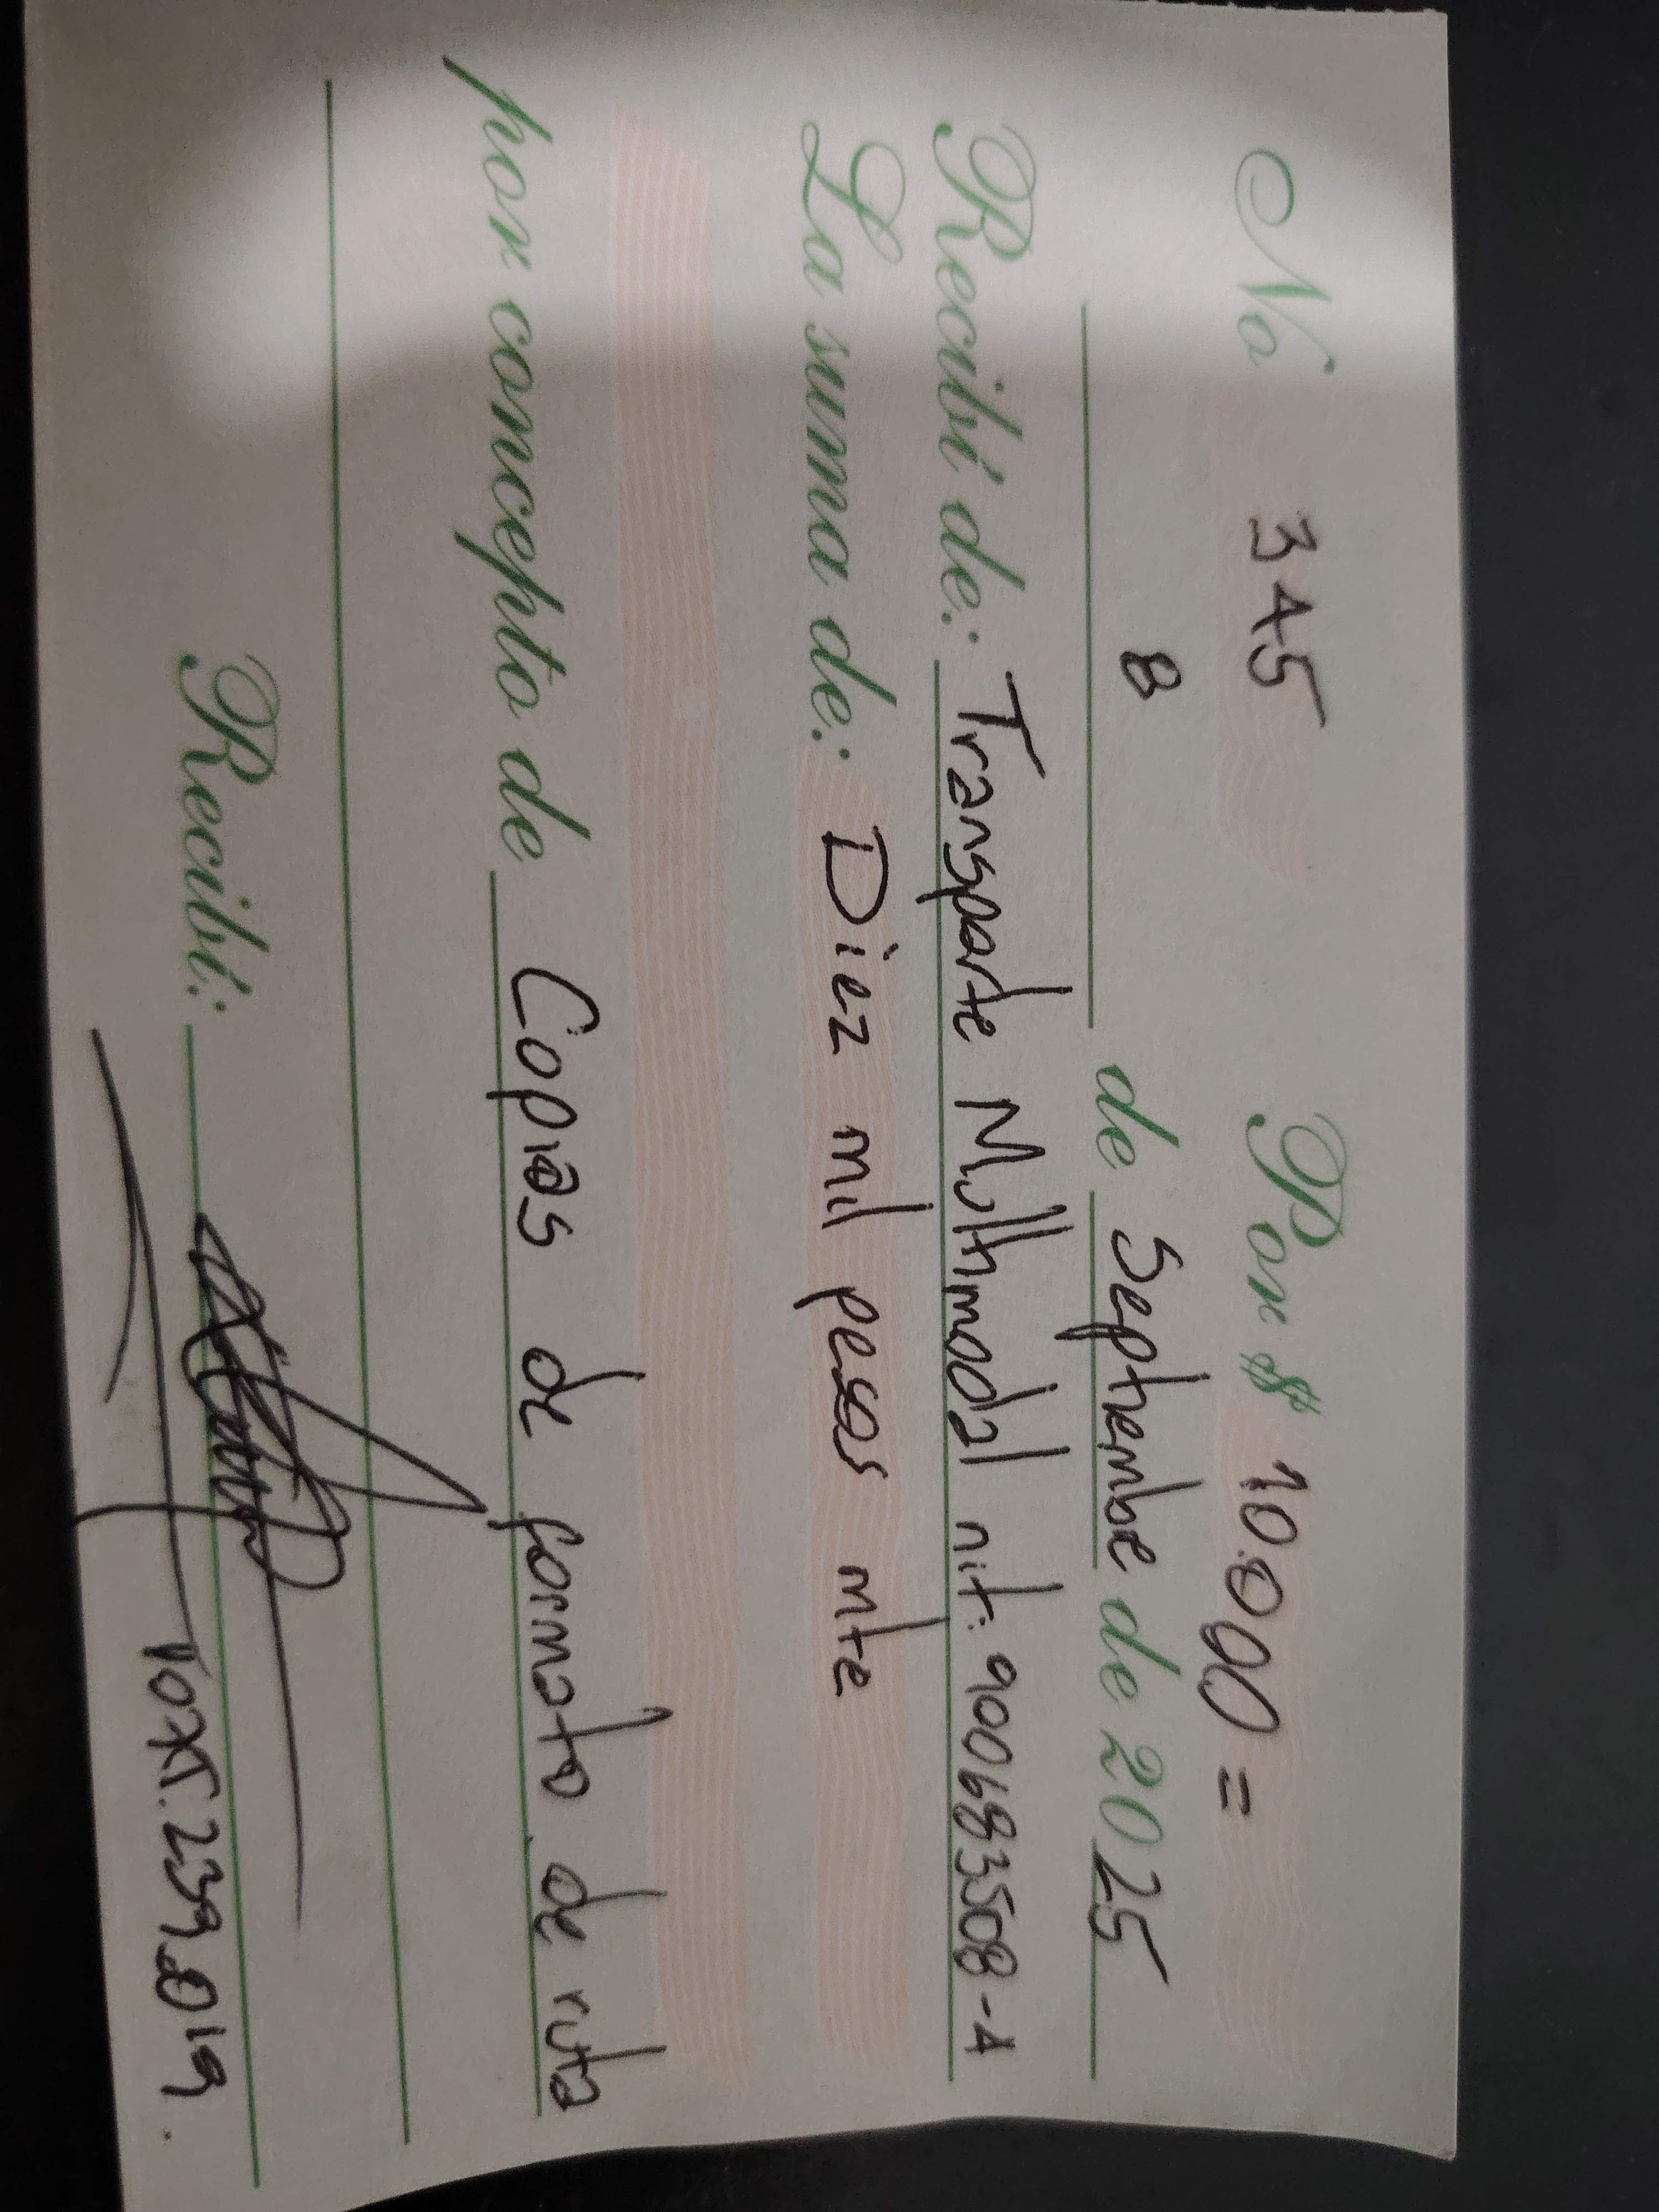 No 345 Por $ 10.000 =
8 de Septiembre de 2025
Recibí de: Transporte Multimodal nit: 900683508-4
La suma de: Diez mil pesos mte
por concepto de Copias de formato de ruta
Recibí: